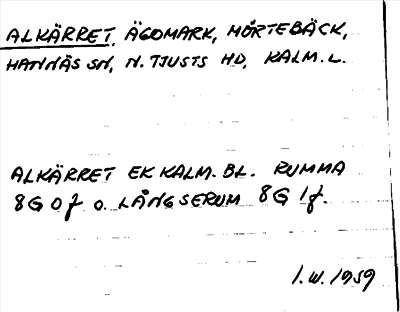 ALKÄRRET, ÄGOMARK, MÖRTEBÄCK,
HANNÄS SN, N. TJUSTS HD, KALM. L.
ALKÄRRET EK KALM. BL. RUMMA
8G 0f o. LÅNGSERUM 8G 1f.
1.W. 1959